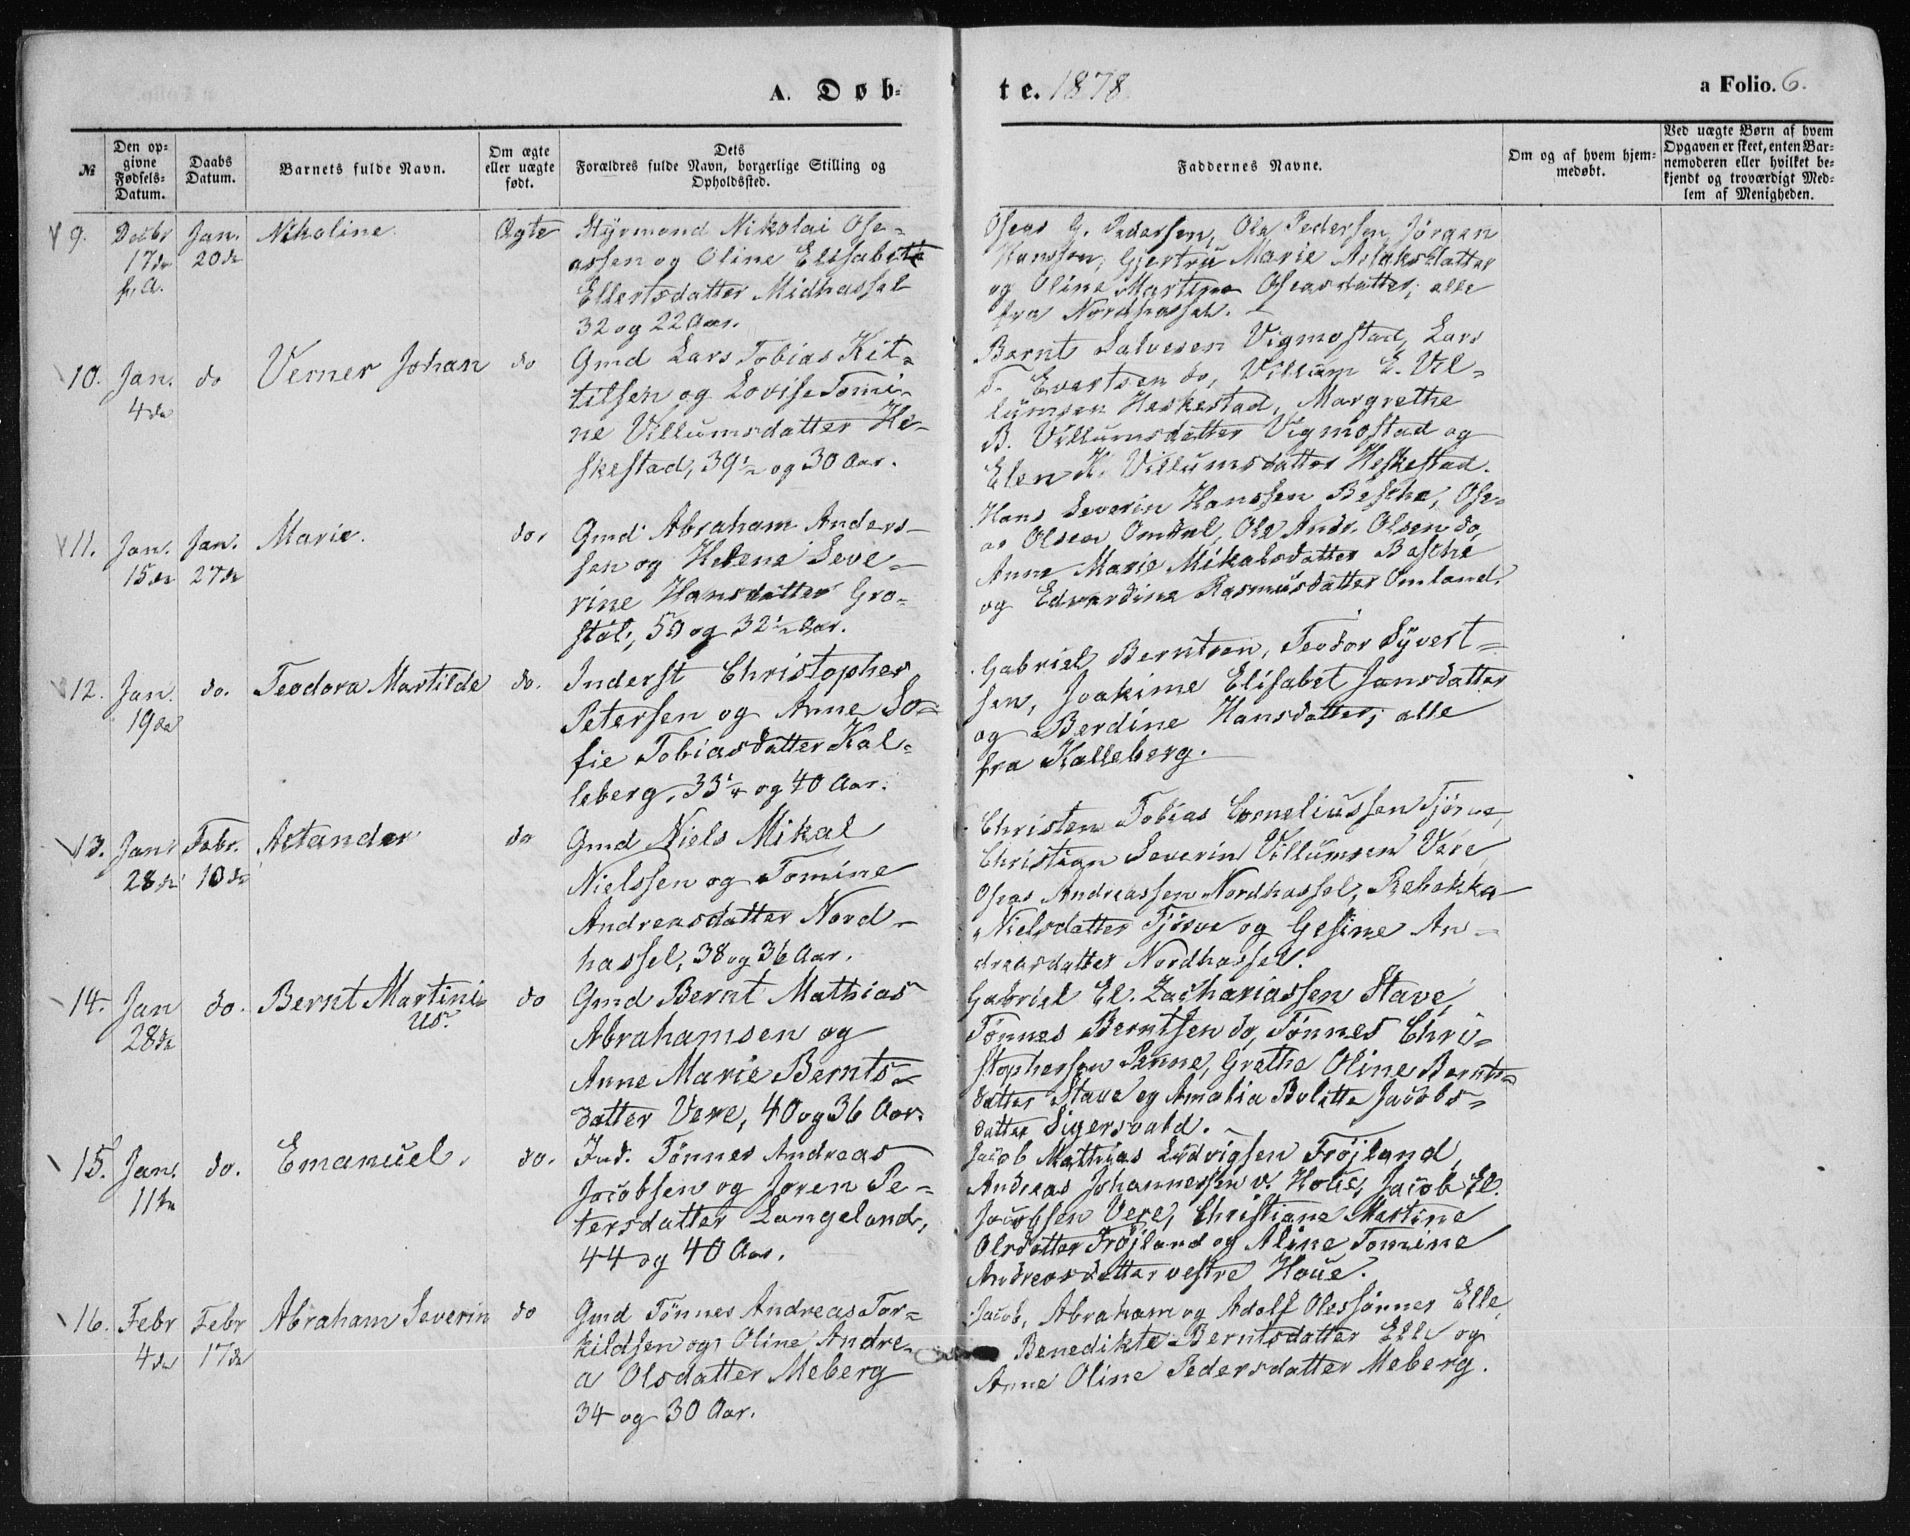 A. Døb-
te. 1878.
a Folio. 6.
№
Den op-
givne
Fødsels-
Datum.
Daabs
Datum.
Barnets fulde Navn.
Om ægte
eller uægte
født.
Dets
Forældres fulde Navn, borgerlige Stilling og
Opholdssted.
Faddernes Navne.
Om og af hvem hjem-
medøbt.
Ved uægte Børn af hvem
Opgaven er skeet, enten Bar-
nemoderen eller hvilket be-
kjendt og troværdigt Med-
lem af Menigheden.
9.
Decbr
17de
f. A.
Jan.
20de
Nikoline.
Ægte
Styrmand Nikolai Ose-
assen og Oline Elisabeth
Ellertsdatter Midhassel
32 og 22 Aar.
Oseas G. Pedersen, Ole Pedersen, Jørgen
Hanssen, Gjertru Marie Aslaksdatter
og Oline Martine Oseasdatter, alle
fra Nordhassel.
10.
Jan.
4de
do
Verner Johan
do
Gmd Lars Tobias Kit-
tilsen og Lovise Tomi-
ne Villumsdatter He-
skestad, 39½ og 30 Aar.
Bernt Salvesen Vigmostad, Lars
T. Evertsen do, Villum E. Vil-
lumsen Heskestad, Margrethe
B. Villumsdatter Vigmostad og
Elen K. Villumsdatter Heskestad.
11.
Jan.
15de
Jan.
27de
Marie.
do.
Gmd Abraham Anders-
sen og Helene Seve-
rine Hansdatter Gro-
støl, 50 og 32½ Aar.
Hans Severin Hanssen Besche, Ose-
as Olsen Omdal, Ole Andr. Olsen do,
Anne Marie Mikalsdatter Besche
og Edvardine Rasmusdatter Omland.
12.
Jan.
19de
do.
Teodora Martilde
do.
Inderst Christopher
Petersen og Anne So-
fie Tobiasdatter Kal-
leberg, 33¼ og 40 Aar.
Gabriel Berntsen, Teodor Syvert-
sen, Joakime Elisabet Jansdatter
og Berdine Hansdatter, alle
fra Kalleberg.
13.
Jan.
28de
Febr.
10de
Aleander
do
Gmd Niels Mikal
Nielssen og Tomine
Andreasdatter Nord-
hassel, 38 og 36 Aar.
Christen Tobias Corneliussen Tjørve,
Christian Severin Villumsen Vere,
Oseas Andreassen Nordhassel, Rebekka
Nielsdatter Tjørve og Gesine An-
dreasdatter Nordhassel.
14.
Jan
28de
do.
Bernt Martini-
us.
do
Gmd Bernt Mathias
Abrahamsen og
Anne Marie Bernts-
datter Vere, 40 og 36 Aar.
Gabriel El. Zachariassen Stave,
Tønnes Berntsen do, Tønnes Chri-
stophersen Penne, Grethe Oline Bernts-
datter Stave og Amalia Bolette Jacobs-
datter Sigersvold.
15.
Jan.
11te
do.
Emanuel.
do.
Ind. Tønnes Andreas
Jacobsen og Joren Pe-
tersdatter Langeland,
44 og 40 Aar.
Jacob Mathias Ludvigsen Trøjland,
Andreas Johannessen v. Houe, Jacob El.
Jacobsen Vere, Christiane Martine
Olsdatter Trøjland og Aline Tomine
Andreasdatter vestre Houe.
16.
Febr
4de
Febr
17de
Abraham Severin
do
Gmd Tønnes Andreas Tor-
kildsen og Oline Andre-
a Olsdatter Meberg
34 og 30 Aar.
Jacob, Abraham og Adolf Olessønner Elle,
Benedikte Berntsdatter Elle og
Anne Oline Pedersdatter Meberg.